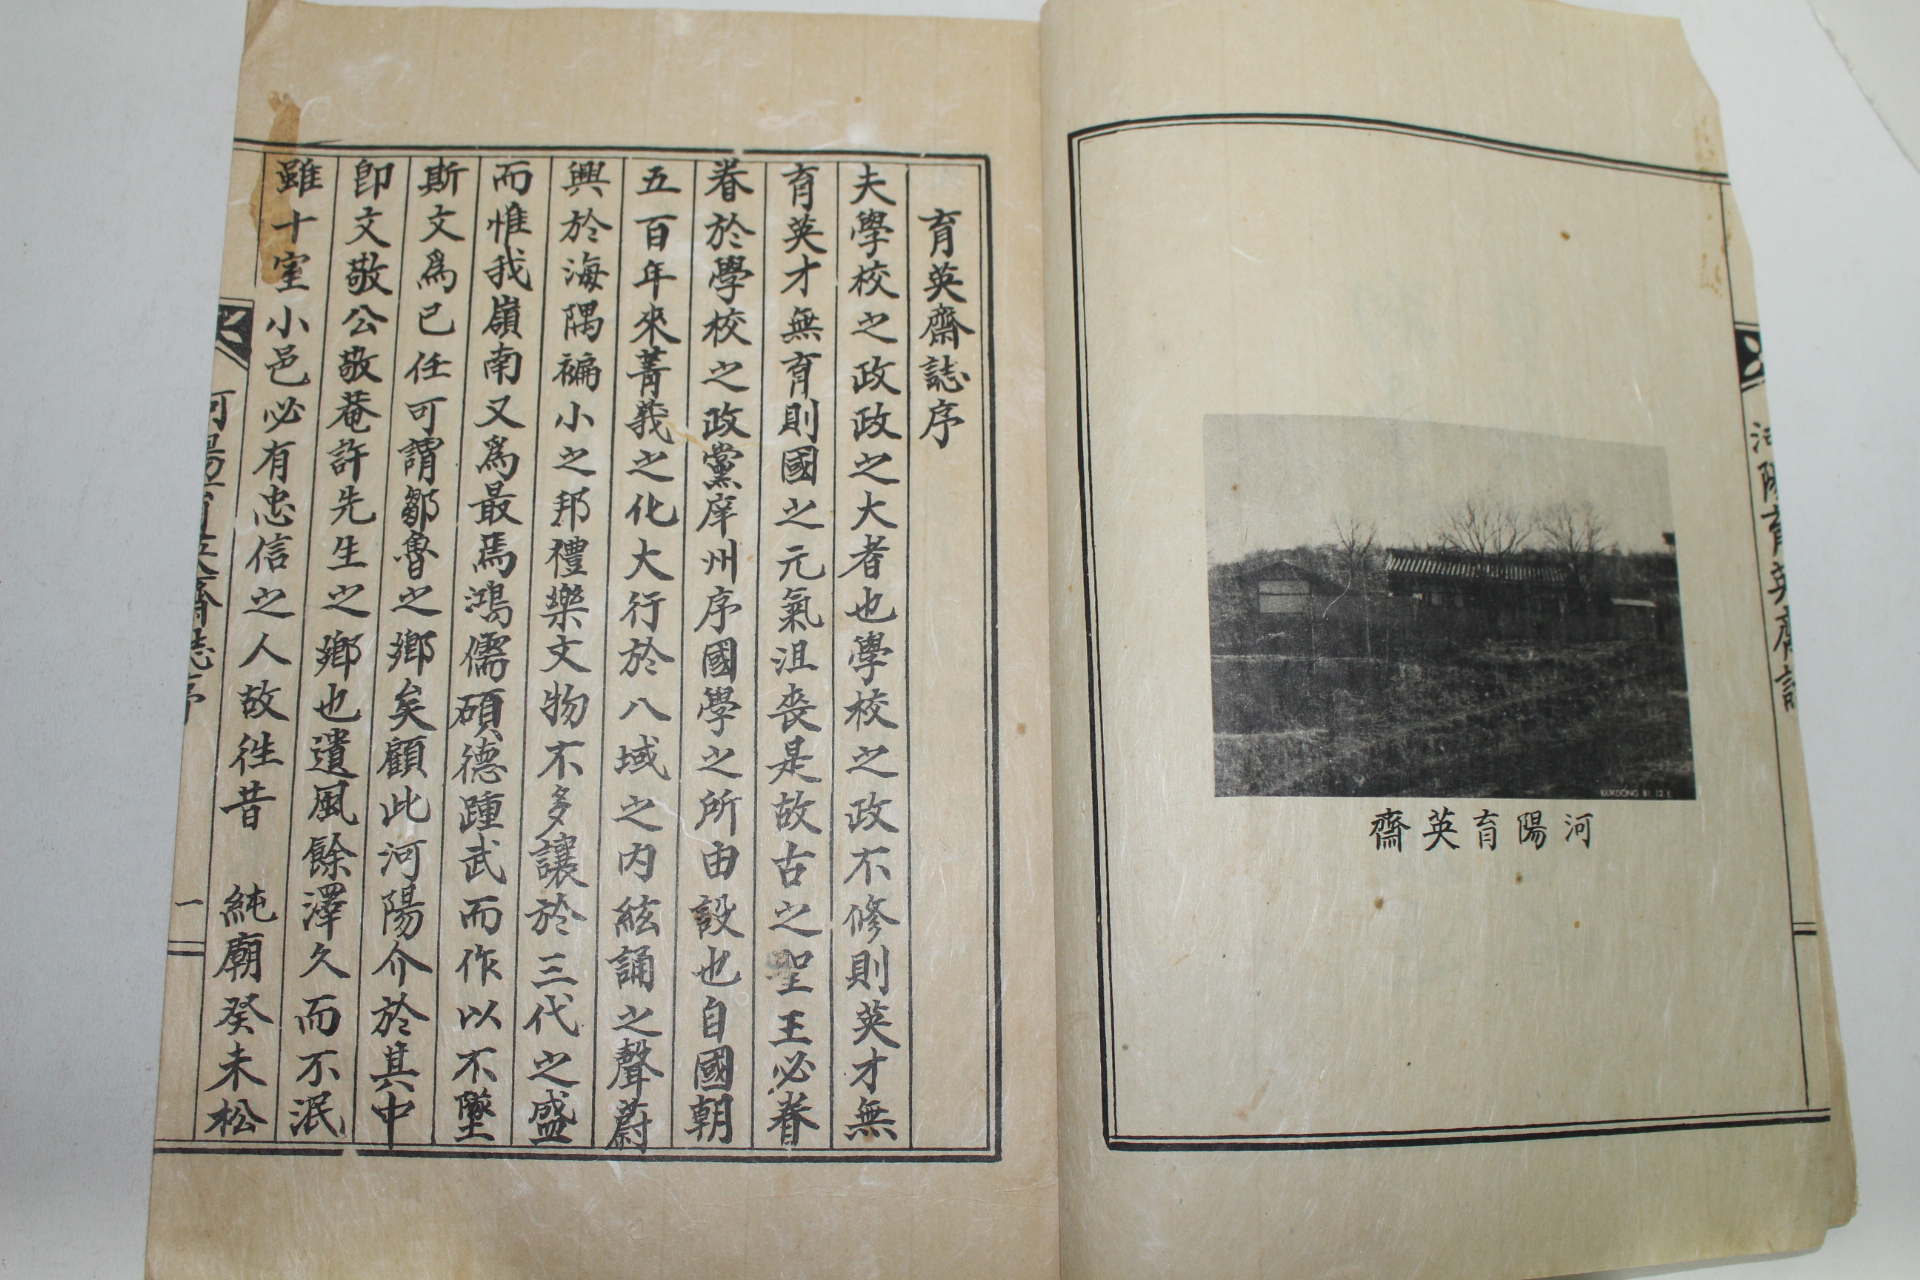 河陽育英齋誌
河陽育英齋
育英齋誌序
夫學校之政政之大者也學校之政不修則英才無
育英才無育則國之元氣沮喪是故古之聖王必眷
眷於學校之政黨庠州序國學之所由設也自國朝
五百年來菁莪之化大行於八域之內絃誦之聲蔚
興於海隅褊小之邦禮樂文物不多讓於三代之盛
而惟我嶺南又爲最焉鴻儒碩德踵武而作以不墜
斯文爲已任可謂鄒魯之鄉矣顧此河陽介於其中
卽文敬公敬菴許先生之鄉也遺風餘澤久而不泯
雖十室小邑必有忠信之人故徃昔 純廟癸未松
河陽育英齋誌序 一